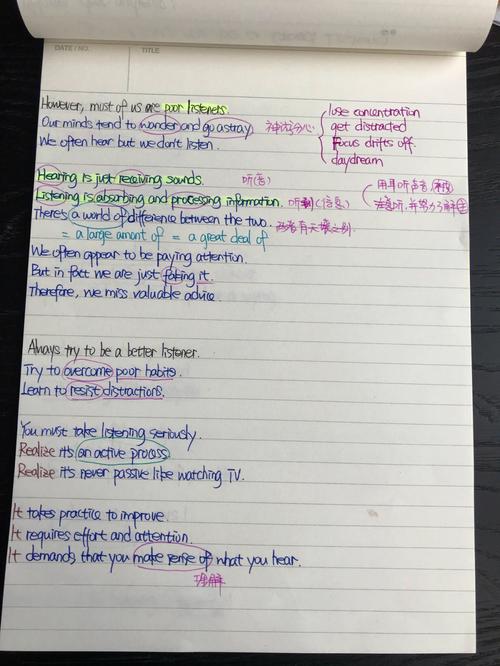 DATE / NO.
TITLE
However, most of us are poor listeners.
Our minds tend to wander and go astray
We often hear but we don't listen.
lose concentration
get distracted
focus drifts off.
daydream
Hearing is just receiving sounds. 听(音)
Listening is absorbing and processing information. 听到(信息)
There's a world of difference between the two. 两者有天壤之别
= a large amont of = a great deal of
We often appear to be paying attention.
But in fact we are just faking it.
Therefore, we miss valuable advice.
Always try to be a better listener.
Try to overcome poor habits.
Learn to resist distractions.
You must take listening seriously.
Realize it's an active process
Realize it's never passive like watching TV.
It takes practice to improve.
It requires effort and attention.
It demands that you make sense of what you hear.
理解